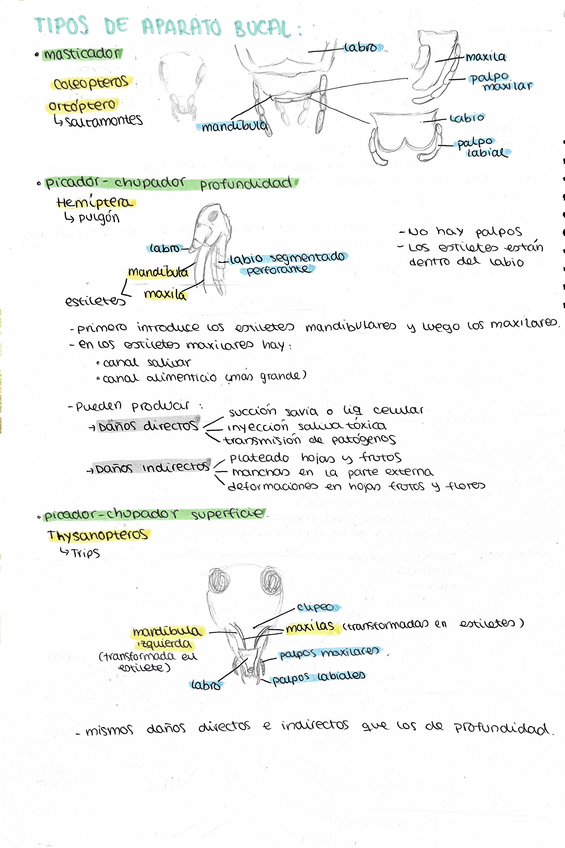 TIPOS DE APARATO BUCAL:
• masticador
Coleopteros
ortóptero
↳ saltamontes
labro
mandíbula
maxila
palpo
maxilar
labio
palpo
labial
• picador-chupador profundidad
Hemíptera
↳ pulgón
labro
mandíbula
maxila
estiletes
labio segmentado
perforante
- No hay palpos
- Los estiletes están
dentro del labio
- primero introduce los estiletes mandibulares y luego los maxilares.
- en los estiletes maxilares hay:
• canal salivar
• canal alimenticio (más grande)
- Pueden producir:
→ Daños directos
succión savia o liq celular
inyección saliva tóxica
transmisión de patógenos
→ Daños indirectos
plateado hojas y frutos
manchas en la parte externa
deformaciones en hojas frutos y flores
• picador-chupador superficie.
Thysanopteros
↳ Trips
clipeo
mandíbula
izquierda
(transformada en
estilete)
maxilas (transformadas en estiletes)
palpos maxilares.
palpos labiales
labro
- mismos daños directos e indirectos que los de profundidad.